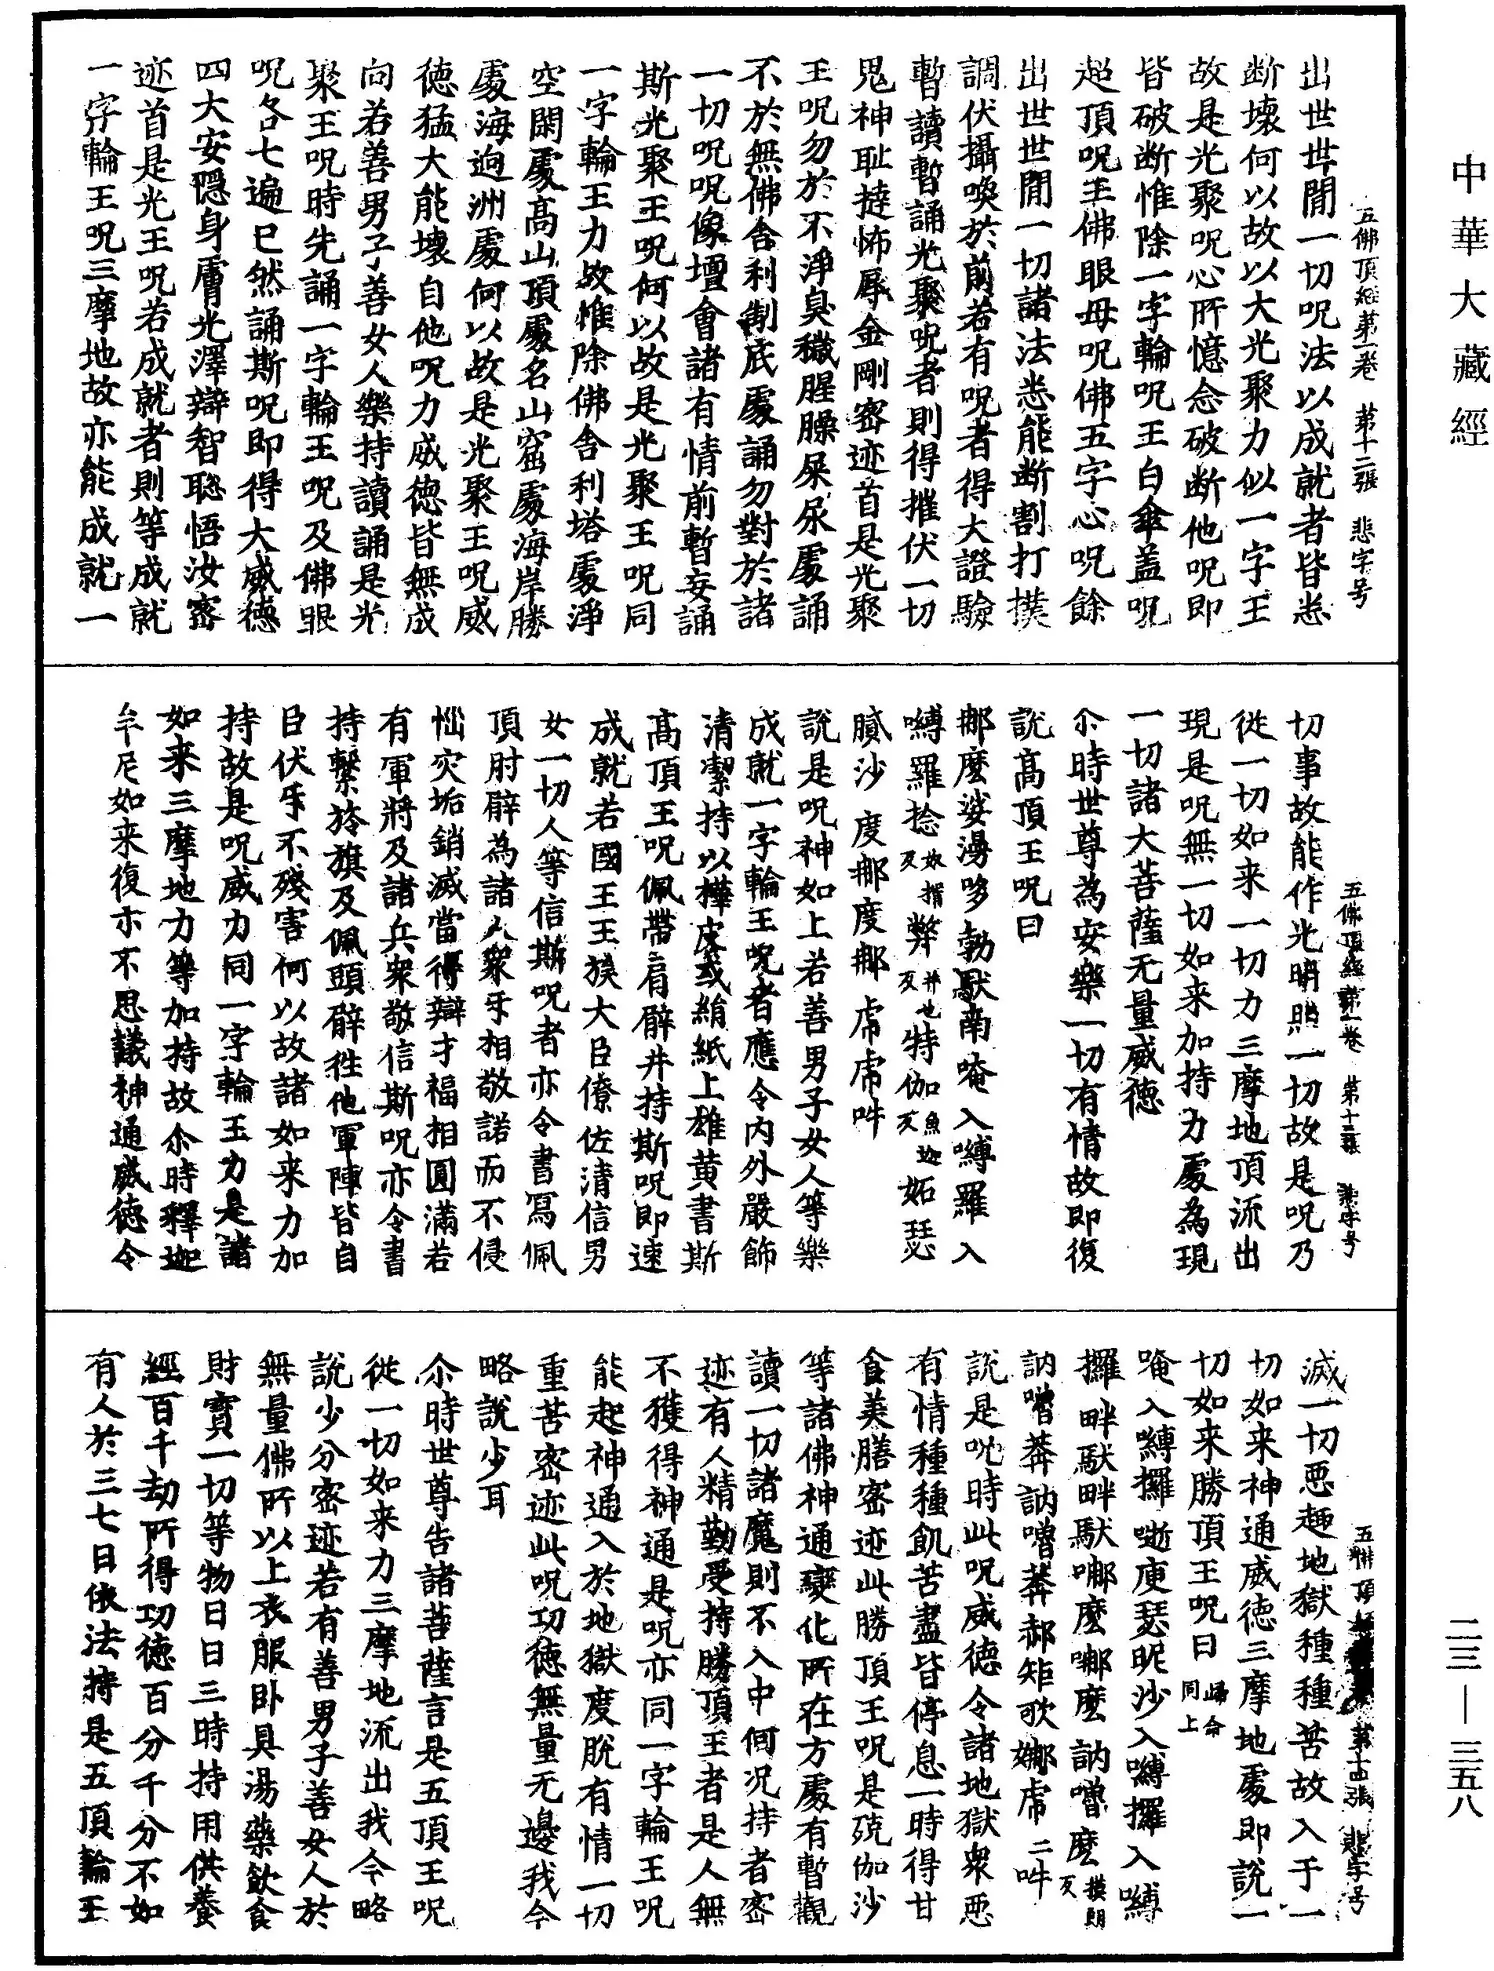 中華大藏經
出世世間一切呪法以成就者皆悉
断壞何以故以大光聚力似一字王
故是光聚呪心肝憶念破断他呪即
皆破断惟除一字輪呪王白傘盖呪
超頂呪王佛眼母呪佛五字心呪餘
出世世間一切諸法悉能断割打撲
調伏攝喚於前若有呪者得大證驗
暫讀暫誦光聚呪者則得摧伏一切
鬼神耻撻怖辱金剛密迹首是光聚
王呪勿於不淨臭穢腥臊屎尿處誦
不於無佛舎利制底處誦勿對於諸
一切呪呪像壇會諸有情前暫妄誦
斯光聚王呪何以故是光聚王呪同
一字輪王力故惟除佛舎利塔處淨
空閑處髙山頂處名山窟處海岸勝
處海逈洲處何以故是光聚王呪威
德猛大能壞自他呪力威德皆無成
向若善男子善女人樂持讀誦是光
聚王呪時先誦一字輪王呪及佛眼
呪各七遍巳然誦斯呪即得大威德
四大安隱身膚光澤辯智聡悟汝密
迹首是光王呪若成就者則等成就
一字輪王呪三摩地故亦能成就一
五佛頂経第一卷 第十二張 悲字号
切事故能作光明照一切故是呪乃
從一切如来一切力三摩地頂流出
現是呪無一切如来加持力處為現
一切諸大菩薩无量威德
尒時世尊為安樂一切有情故即復
說髙頂王呪曰
娜麽娑溤哆勃馱南唵入嚩羅入
嚩羅捻奴揖反弊并也反特伽魚迦反妬瑟
膩沙 度娜度娜 虎虎吽
說是呪神如上若善男子女人等樂
成就一字輪王呪者應令内外嚴飾
清潔持以樺皮或絹紙上雄黄書斯
髙頂王呪佩帶肩臂并持斯呪即速
成就若國王王族大臣僚佐清信男
女一切人等信斯呪者亦令書寫佩
頂肘臂為諸人衆㸦相敬諾而不侵
惱灾垢銷滅當得辯才福相圓滿若
有軍將及諸兵衆敬信斯呪亦令書
持繫於旗及佩頭臂徃他軍陣皆自
臣伏㸦不殘害何以故諸如来力加
持故是呪威力同一字輪王力是諸
如来三摩地力等加持故尒時釋迦
牟尼如来復亦不思議神通威德令
五佛頂經第一卷 第十三張 悲字号
滅一切悪趣地獄種種苦故入于一
切如来神通威德三摩地處即說一
切如来勝頂王呪曰歸命同上
唵入嚩攞逝庾瑟昵沙入嚩攞入嚩
攞畔馱畔馱娜麽娜麽訥嚕麽摸朗反
訥嚕莾訥嚕莾郝矩歌娜虎二吽
說是呪時此呪威德令諸地獄衆悪
有情種種飢苦盡皆停息一時得甘
食美膳密迹此勝頂王呪是殑伽沙
等諸佛神通變化所在方處有暫觀
讀一切諸魔則不入中何况持者密
迹有人精勤受持勝頂王者是人無
不獲得神通是呪亦同一字輪王呪
能起神通入於地獄度脫有情一切
重苦密迹此呪功德無量无邊我今
略說少耳
尒時世尊告諸菩薩言是五頂王呪
從一切如来力三摩地流出我今略
說少分密迹若有善男子善女人於
無量佛所以上衣服卧具湯藥飲食
財寶一切等物日日三時持用供養
經百千劫所得功德百分千分不如
有人於三七日依法持是五頂輪王
五佛頂經 第十四張 悲字号
二三—三五八